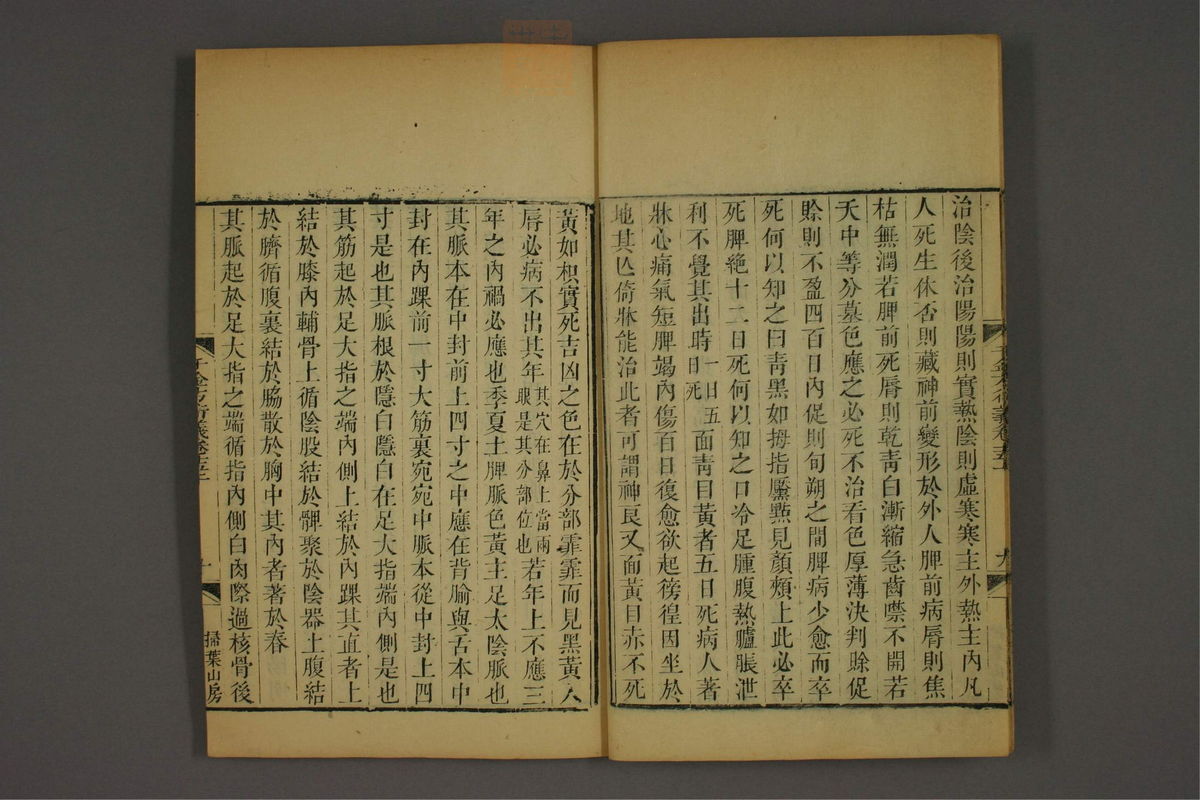 治陰後治陽陽則實熱陰則虛寒寒主外熱主內凡
人死生休否則藏神前變形於外人脾前病脣則焦
枯無潤若脾前死脣則乾靑白漸縮急齒噤不開若
天中等分墓色應之必死不治看色厚薄決判賖促
賖則不盈四百日內促則旬朔之間脾病少愈而卒
死何以知之曰靑黑如拇指黶㸃見顏頰上此必卒
死脾絕十二日死何以知之口冷足腫腹熱臚脹泄
利不覺其出時一曰五日死面靑目黃者五日死病人著
牀心痛氣短脾竭內傷百日復愈欲起徬徨因坐於
地其亾倚牀能治此者可謂神良又面黃目赤不死
黃如枳實死吉凶之色在於分部霏霏而見黑黃入
脣必病不出其年其穴在鼻上當兩眼是其分部位也若年上不應三
年之內禍必應也季夏土脾脈色黃主足太陰脈也
其脈本在中封前上四寸之中應在背腧與舌本中
封在內踝前一寸大筋裏宛宛中脈本從中封上四
寸是也其脈根於隱白隱白在足大指端內側是也
其筋起於足大指之端內側上結於內踝其直者上
結於膝內輔骨上循陰股結於髀聚於陰器上腹結
於臍循腹裏結於脇散於胸中其內者著於脊
其脈起於足大指之端循指內側白肉際過核骨後
掃葉山房